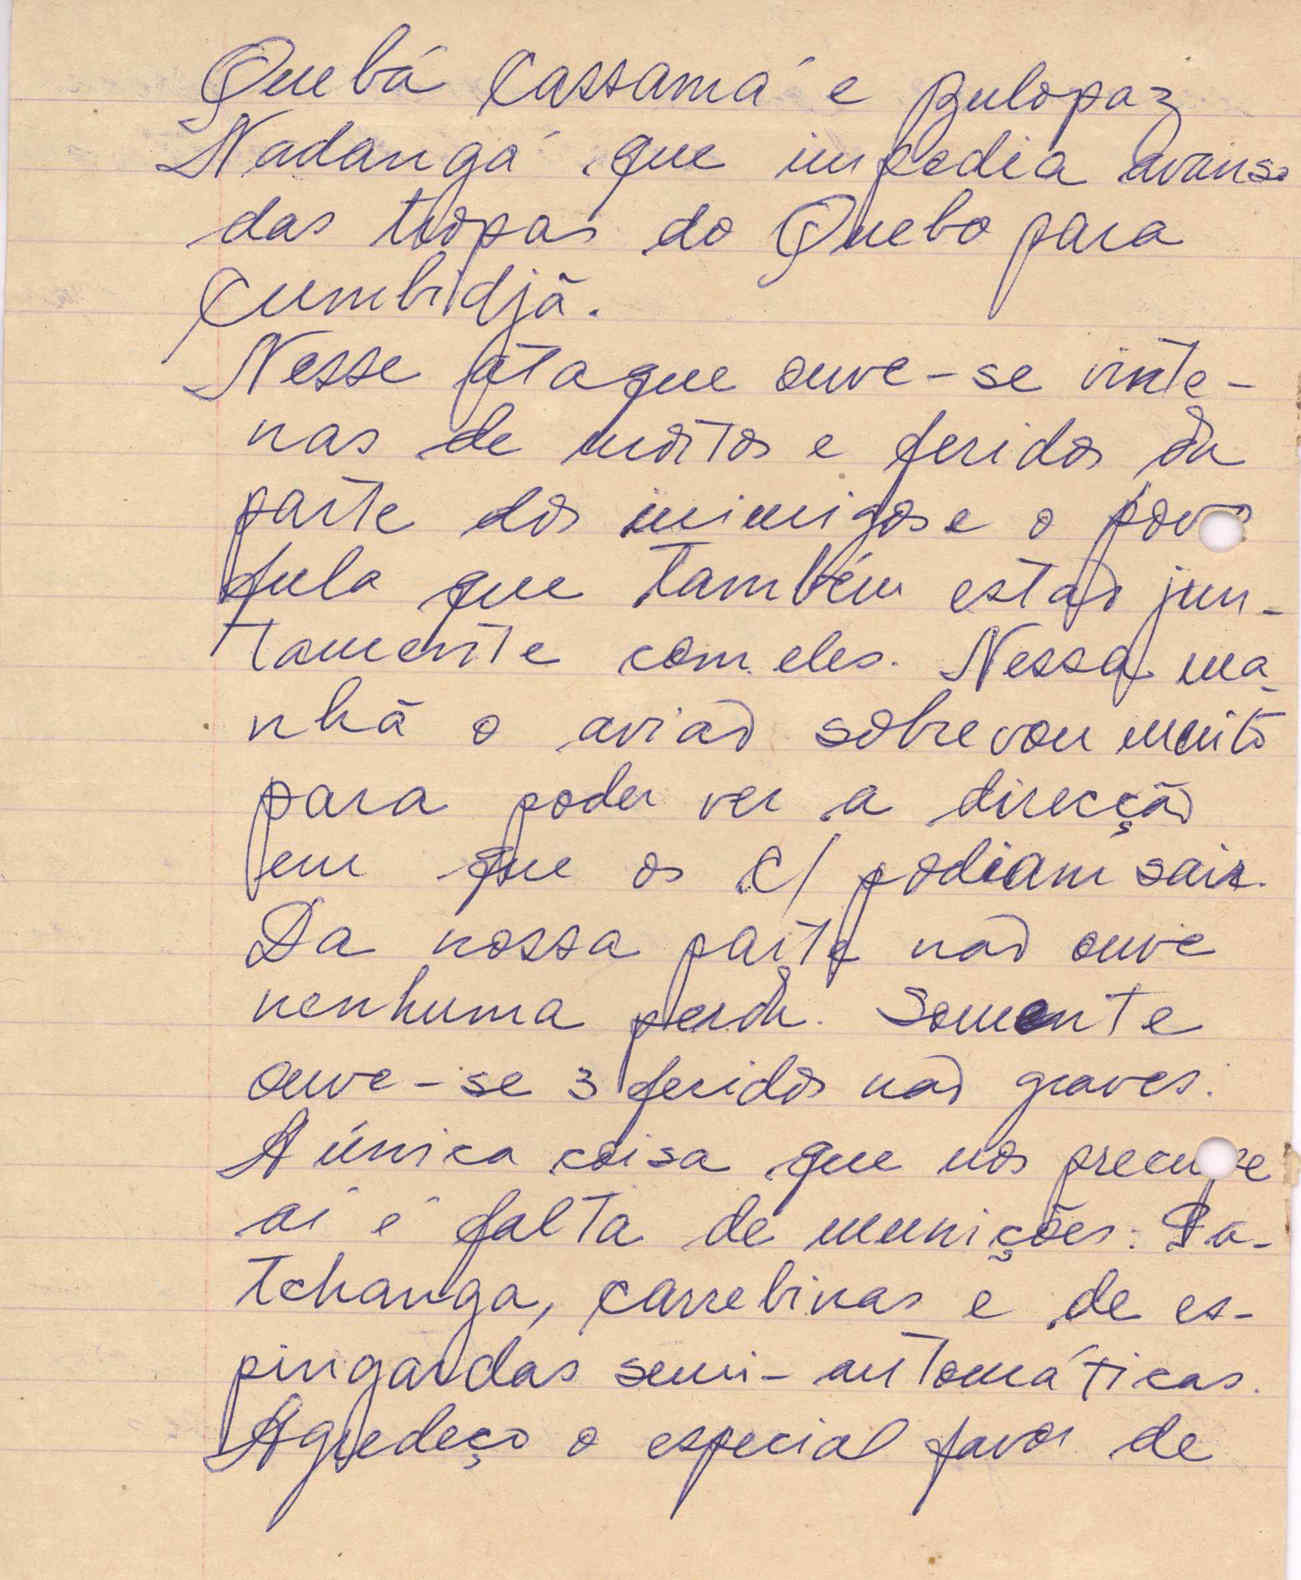 Quebá Cassamá e Bulopaz
Nadangá que impedia avanso
das tropas do Quebo para
Cumbidjã.
Nesse ataque ouve-se vinte-
nas de mortos e feridos da
parte dos inimigos e o povo
fula que também estão jun-
tamente com eles. Nessa ma-
nhã o avião sobrevou muito
para poder ver a direcção
em que os C/ podiam sair.
Da nossa parte não ouve
nenhuma perda. Somente
ouve-se 3 feridos não graves.
A única coisa que nos precupe
ai é falta de munições: Pa-
tchanga, carrebinas e de es-
pingardas semi-automáticas.
Agredeço o especial favor de